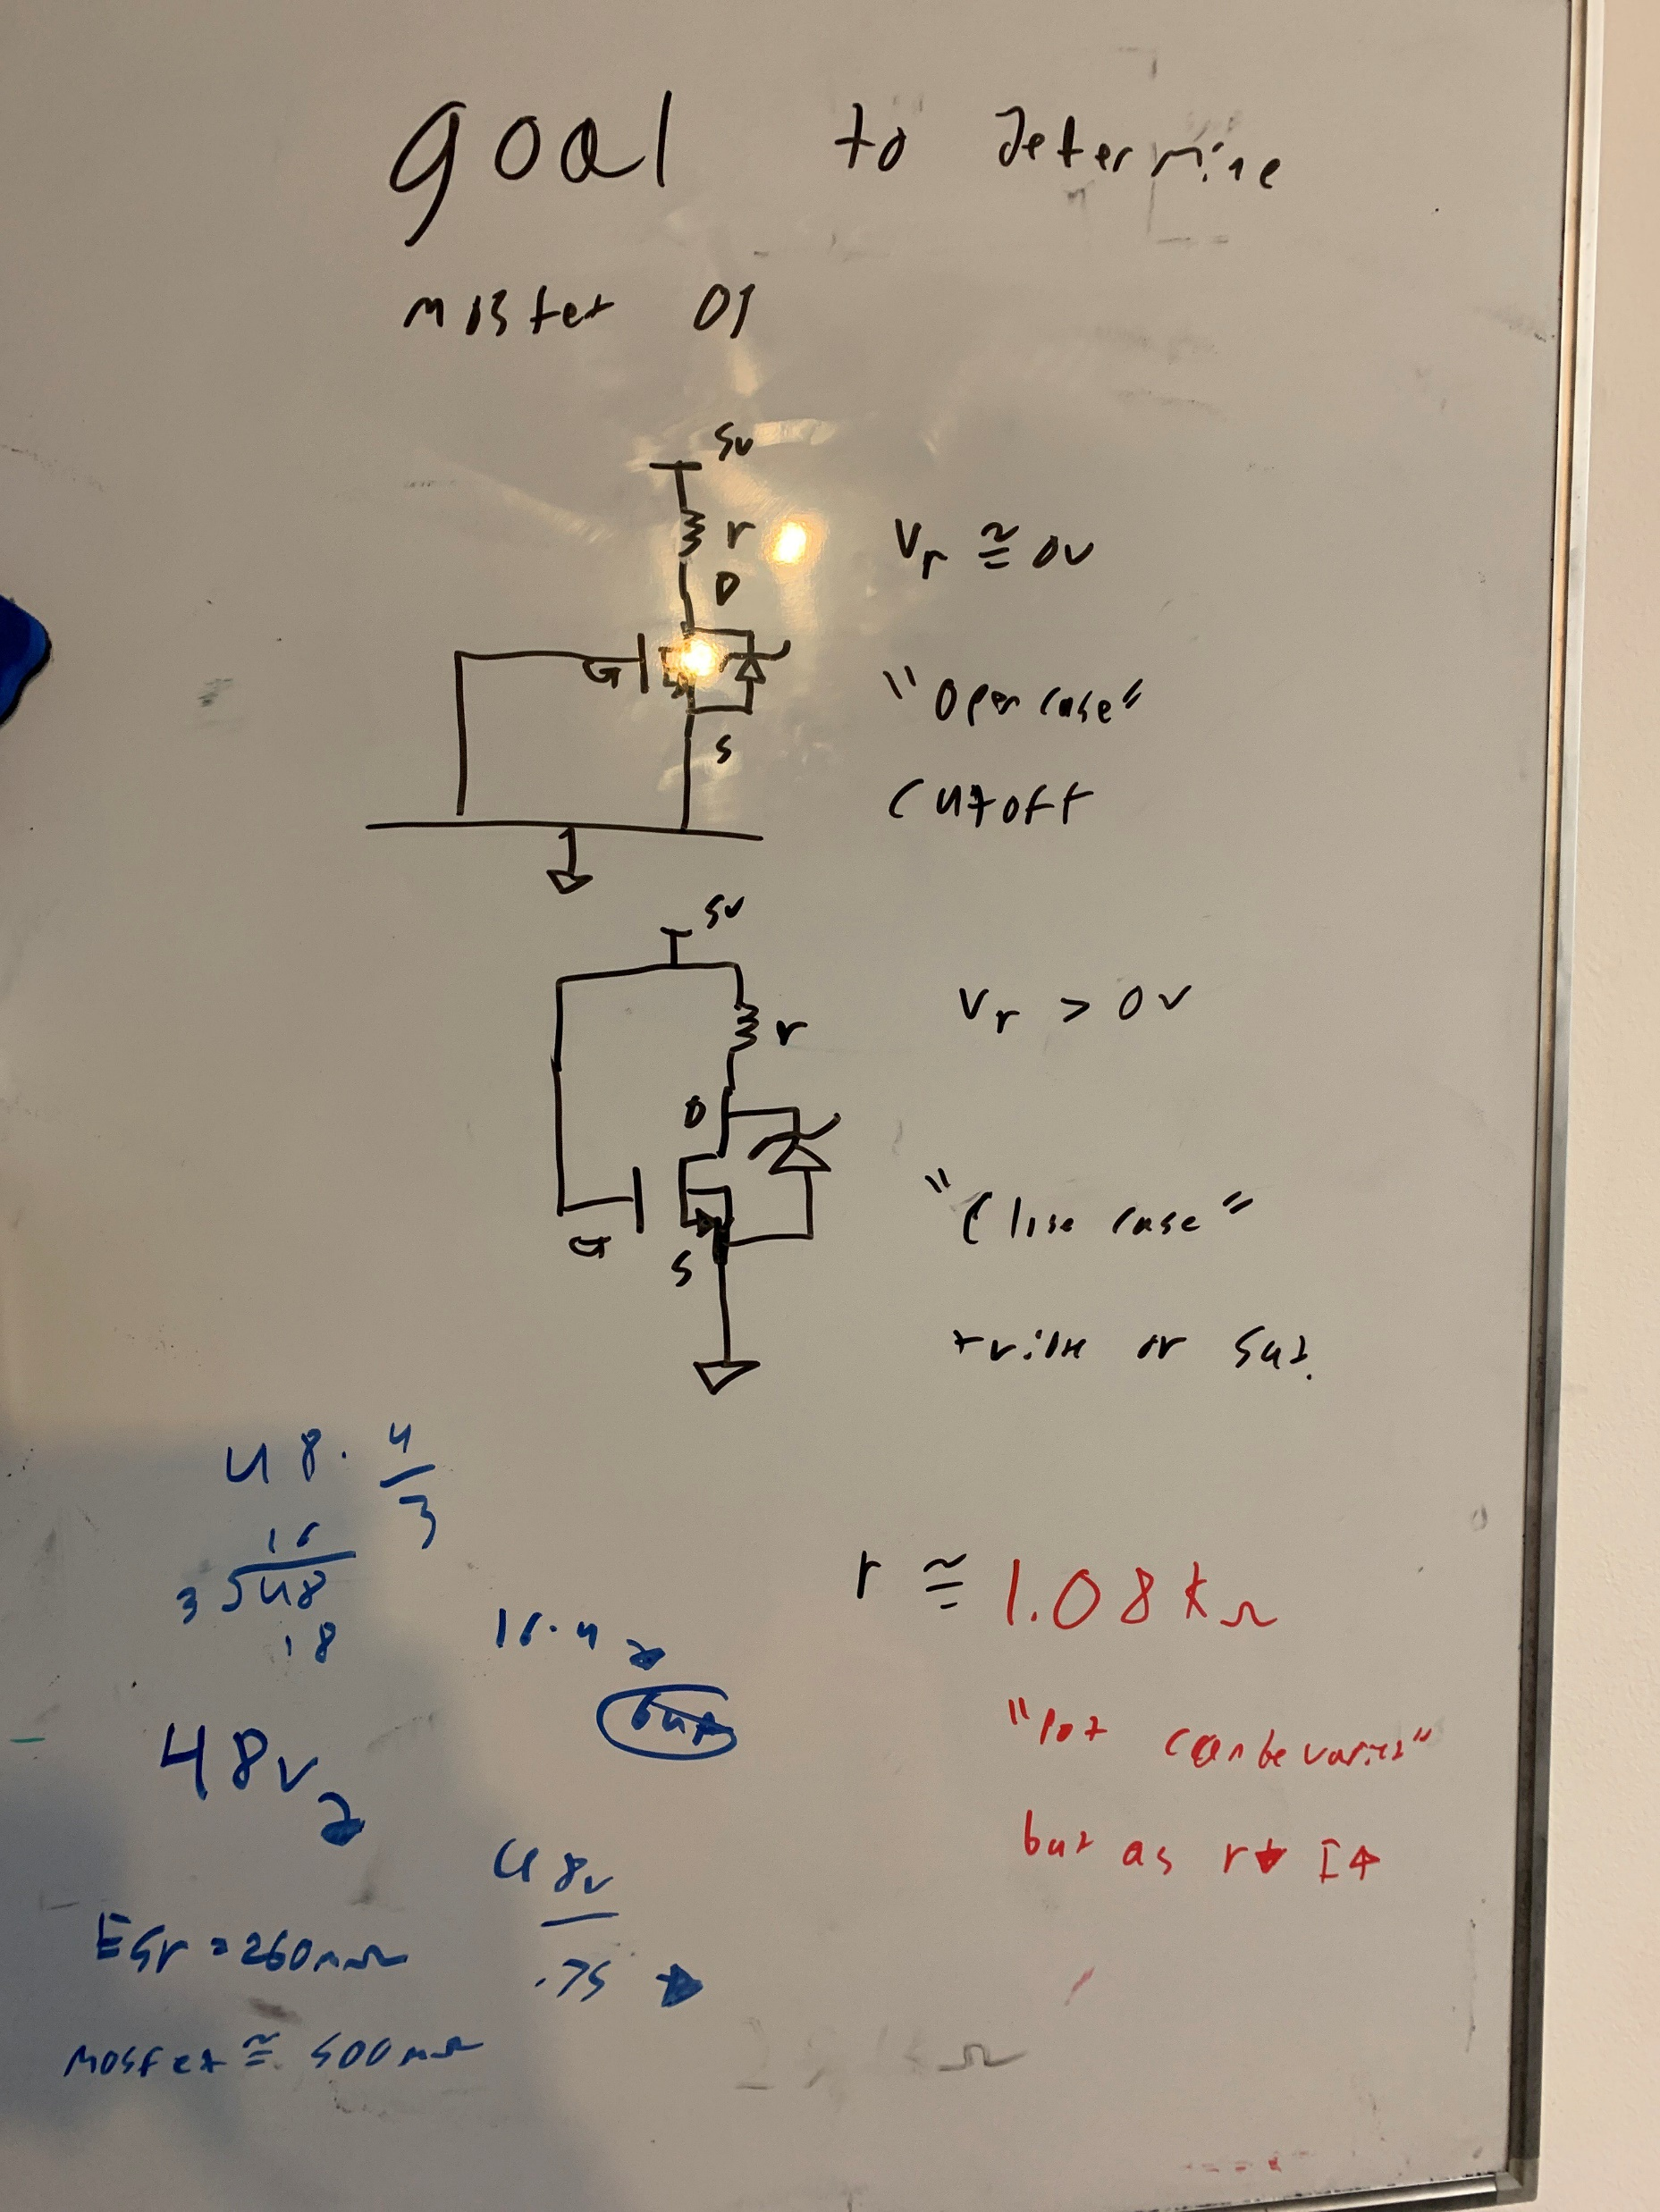 goal to determine
mosfet
5v
r
D
G
S
Vr ≅ 0v
"Open case"
Cutoff
5v
r
D
G
S
Vr > 0v
"Close case"
triode or sat.
48 · 4/3
16
3 √48
18
16.4
48v
48v
.75
ESr = 260mΩ
MOSFet ≅ 500mΩ
r ≅ 1.08kΩ
"Pot can be varied"
but as r↓ I↑